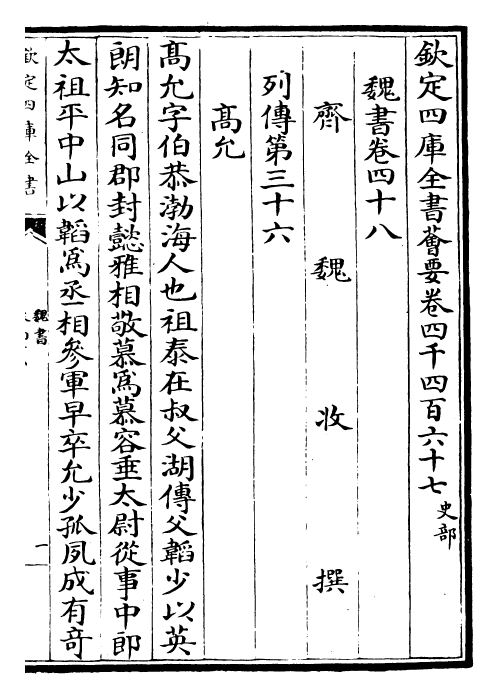 欽定四庫全書薈要卷四千四百六十七 史部
魏書卷四十八
齊 魏 收 撰
列傳第三十六
高允
高允字伯恭渤海人也祖泰在叔父湖傳父韜少以英
朗知名同郡封懿雅相敬慕爲慕容垂太尉從事中郎
太祖平中山以韜爲丞相參軍早卒允少孤夙成有竒
欽定四庫全書
魏書
一